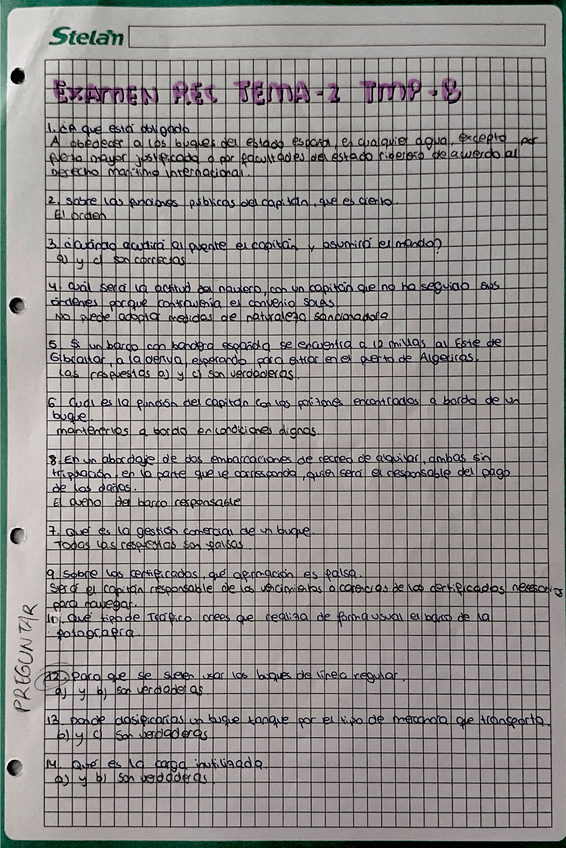 Stelan
EXAMEN REC TEMA-2 TMP-8
1. ¿A que está obligado
A obedecer a los buques del estado español, en cualquier agua, excepto por
fuerza mayor justificada o por facultades del estado ribereño de acuerdo al
Derecho marítimo internacional.
2. Sobre las funciones públicas del capitán, que es cierto.
El orden
3. ¿Cuándo acudirá al puente el capitán y asumirá el mando?
a) y c) son correctas
4. Cuál será la actitud del naviero, con un capitán que no ha seguido sus
órdenes porque contravenía el convenio solas.
No puede adoptar medidas de naturaleza sancionadora
5. Si un barco con bandera española se encuentra a 12 millas al Este de
Gibraltar, a la deriva, esperando para entrar en el puerto de Algeciras.
Las respuestas a) y c) son verdaderas.
6. Cual es la función del capitán con los polizones encontrados a bordo de un
buque.
mantenerlos a bordo en condiciones dignas.
8. En un abordaje de dos embarcaciones de recreo de alquiler, ambas sin
tripulación, en la parte que le corresponda, quien será el responsable del pago
de los daños.
El dueño del barco responsable
7. Qué es la gestión comercial de un buque.
Todas las respuestas son falsas
9. Sobre los certificados, qué afirmación es falsa.
Será el capitán responsable de los vencimientos o carencias de los certificados necesarios
para navegar.
10. Qué tipo de Tráfico crees que realiza de forma usual el barco de la
fotografía.
PREGUNTAR
12. Para que se suelen usar los buques de línea regular.
a) y b) son verdaderas
13. Donde clasificarías un buque tanque por el tipo de mercancía que transporta.
b) y c) Son verdaderas
14. Qué es la carga inutilizada.
a) y b) son verdaderas.